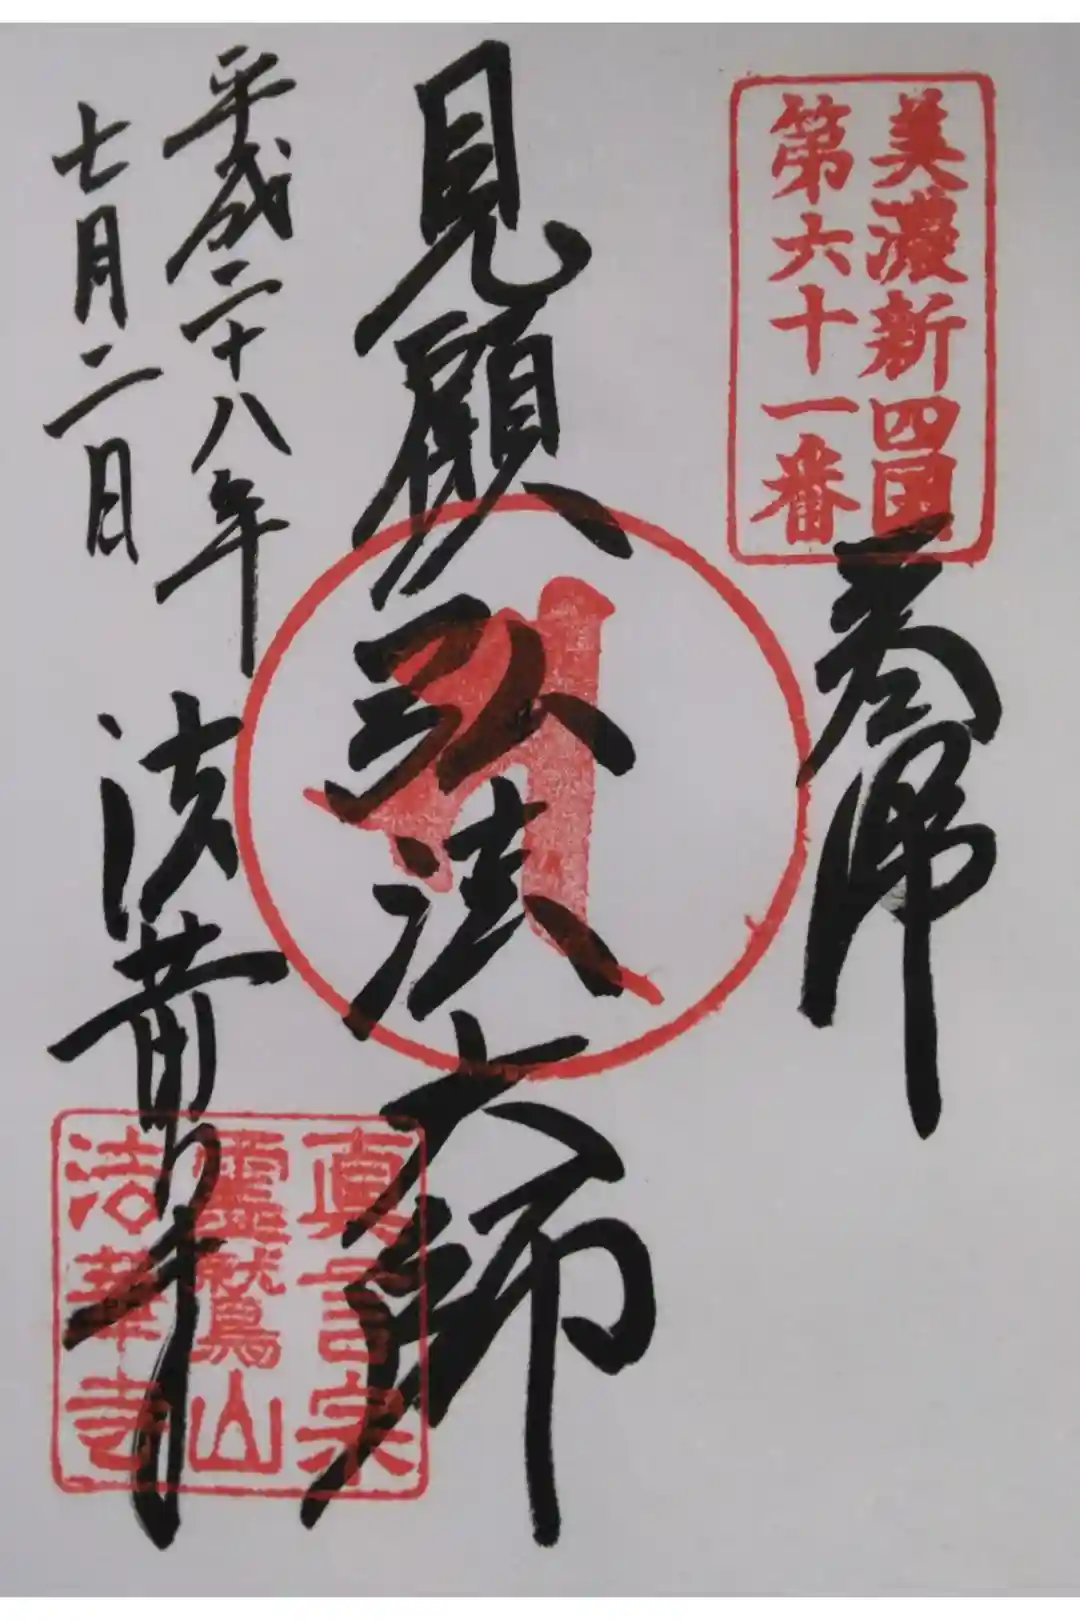 美濃新四国
第六十一番
奉拝
見顧弘法大師
平成二十八年
七月二日
法華寺
真言宗
霊鷲山
法華寺